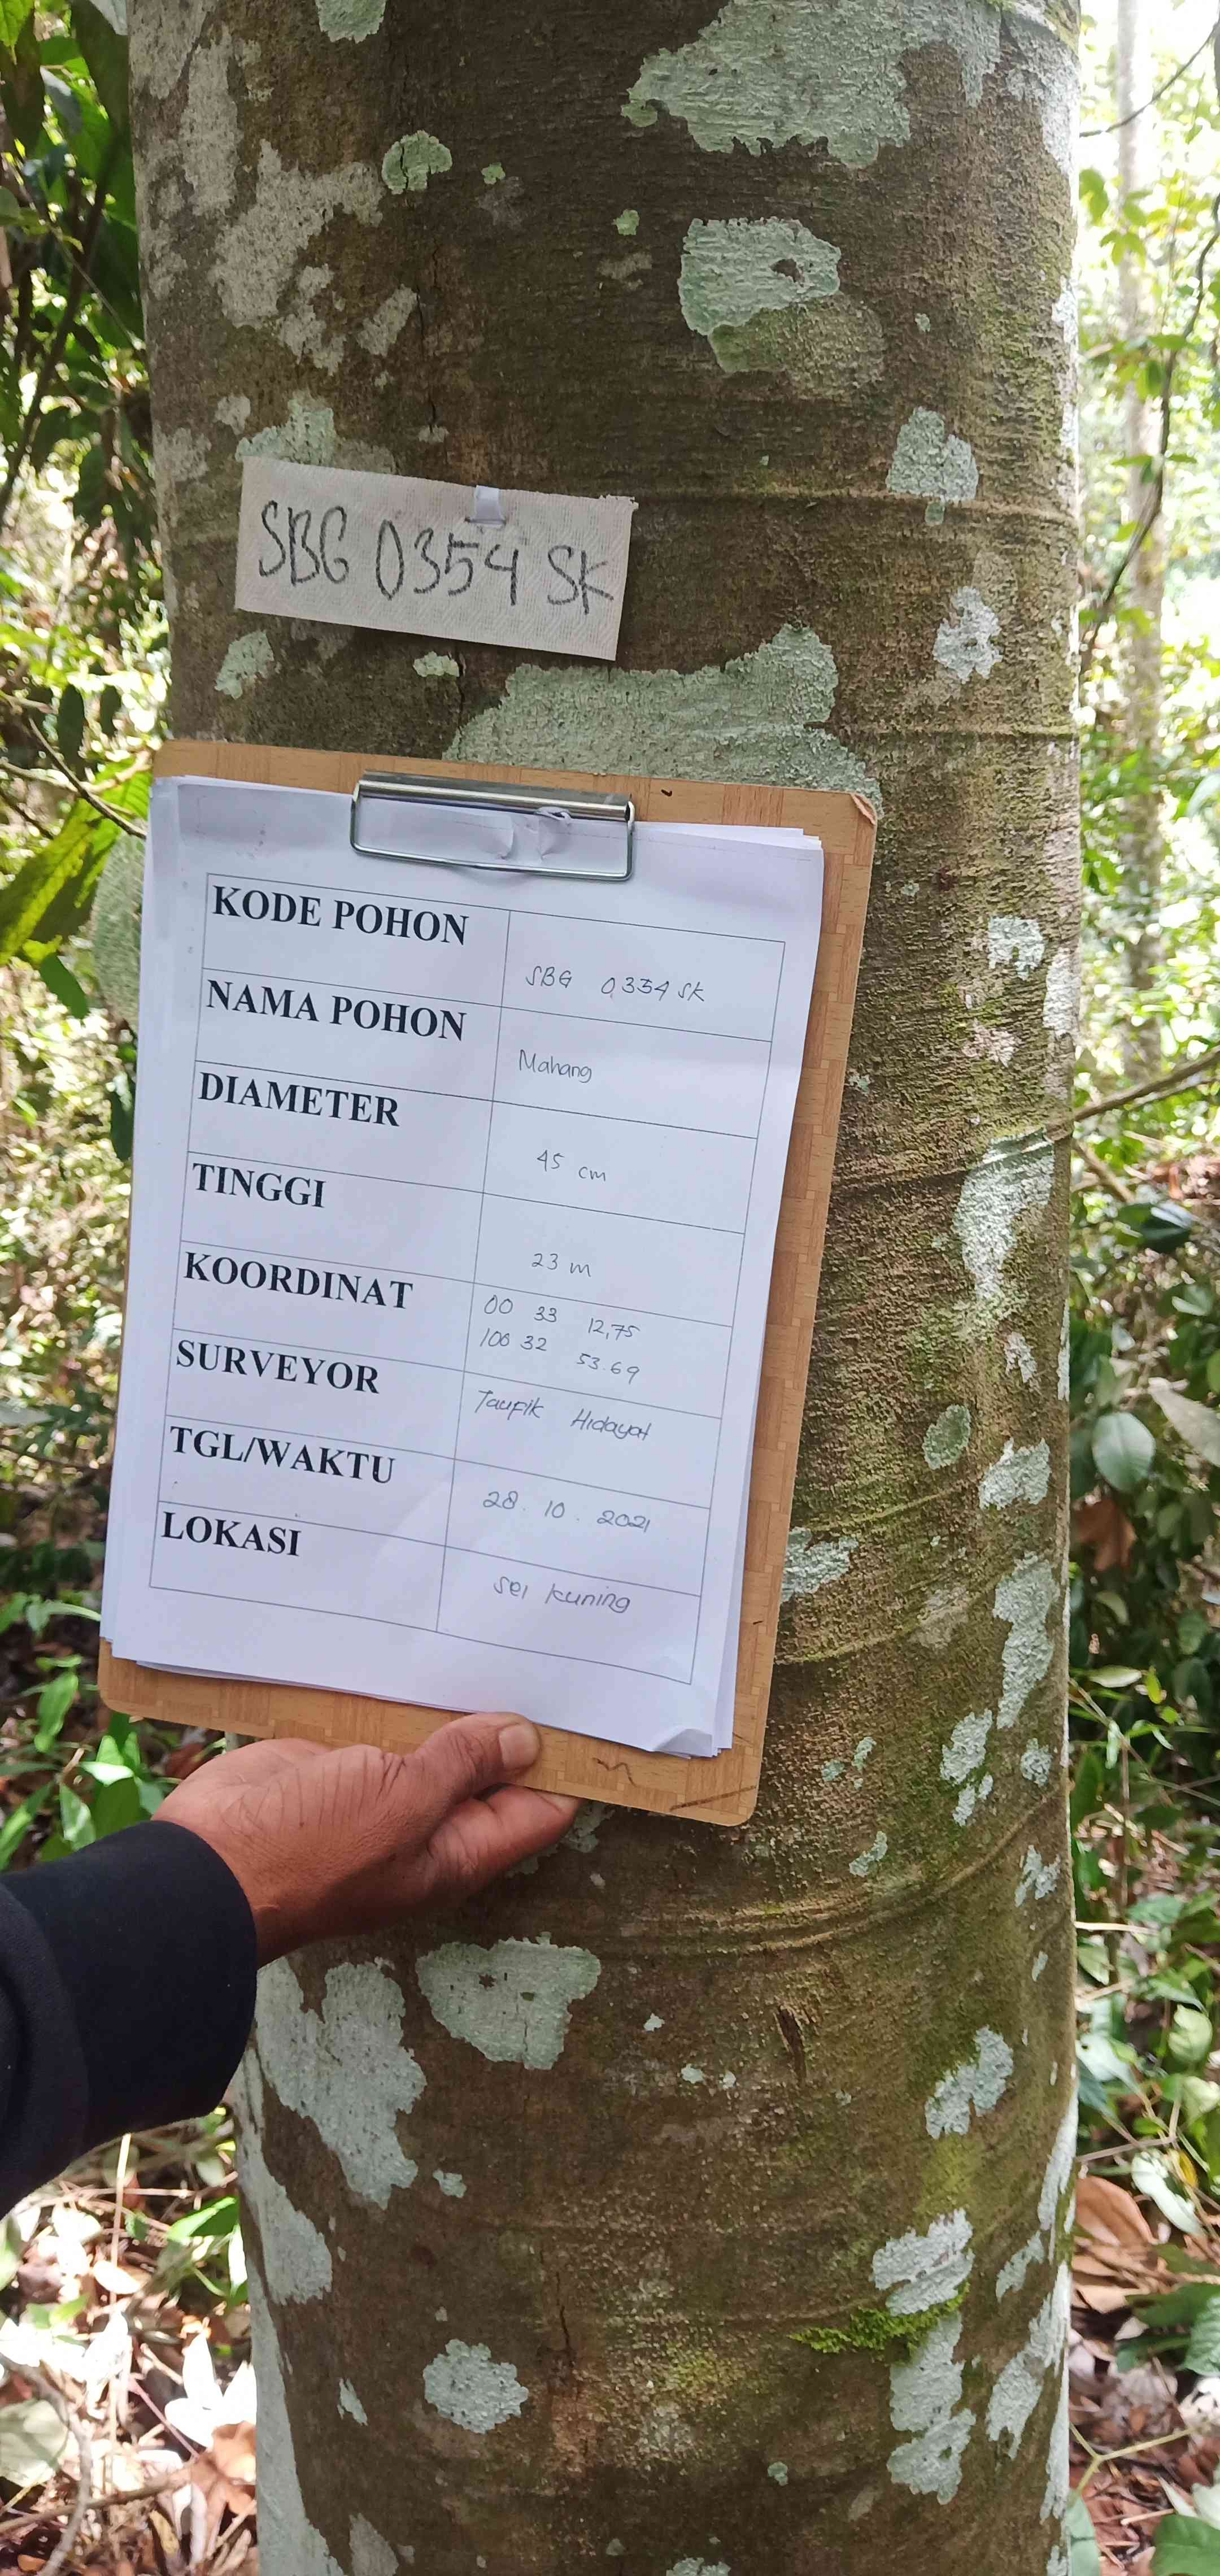 SBG 0354 SK
KODE POHON
SBG 0354 SK
NAMA POHON
Mahang
DIAMETER
45 cm
TINGGI
23 m
KOORDINAT
00 33 12,75
100 32 53.69
SURVEYOR
Taufik Hidayat
TGL/WAKTU
28. 10. 2021
LOKASI
Sei Kuning